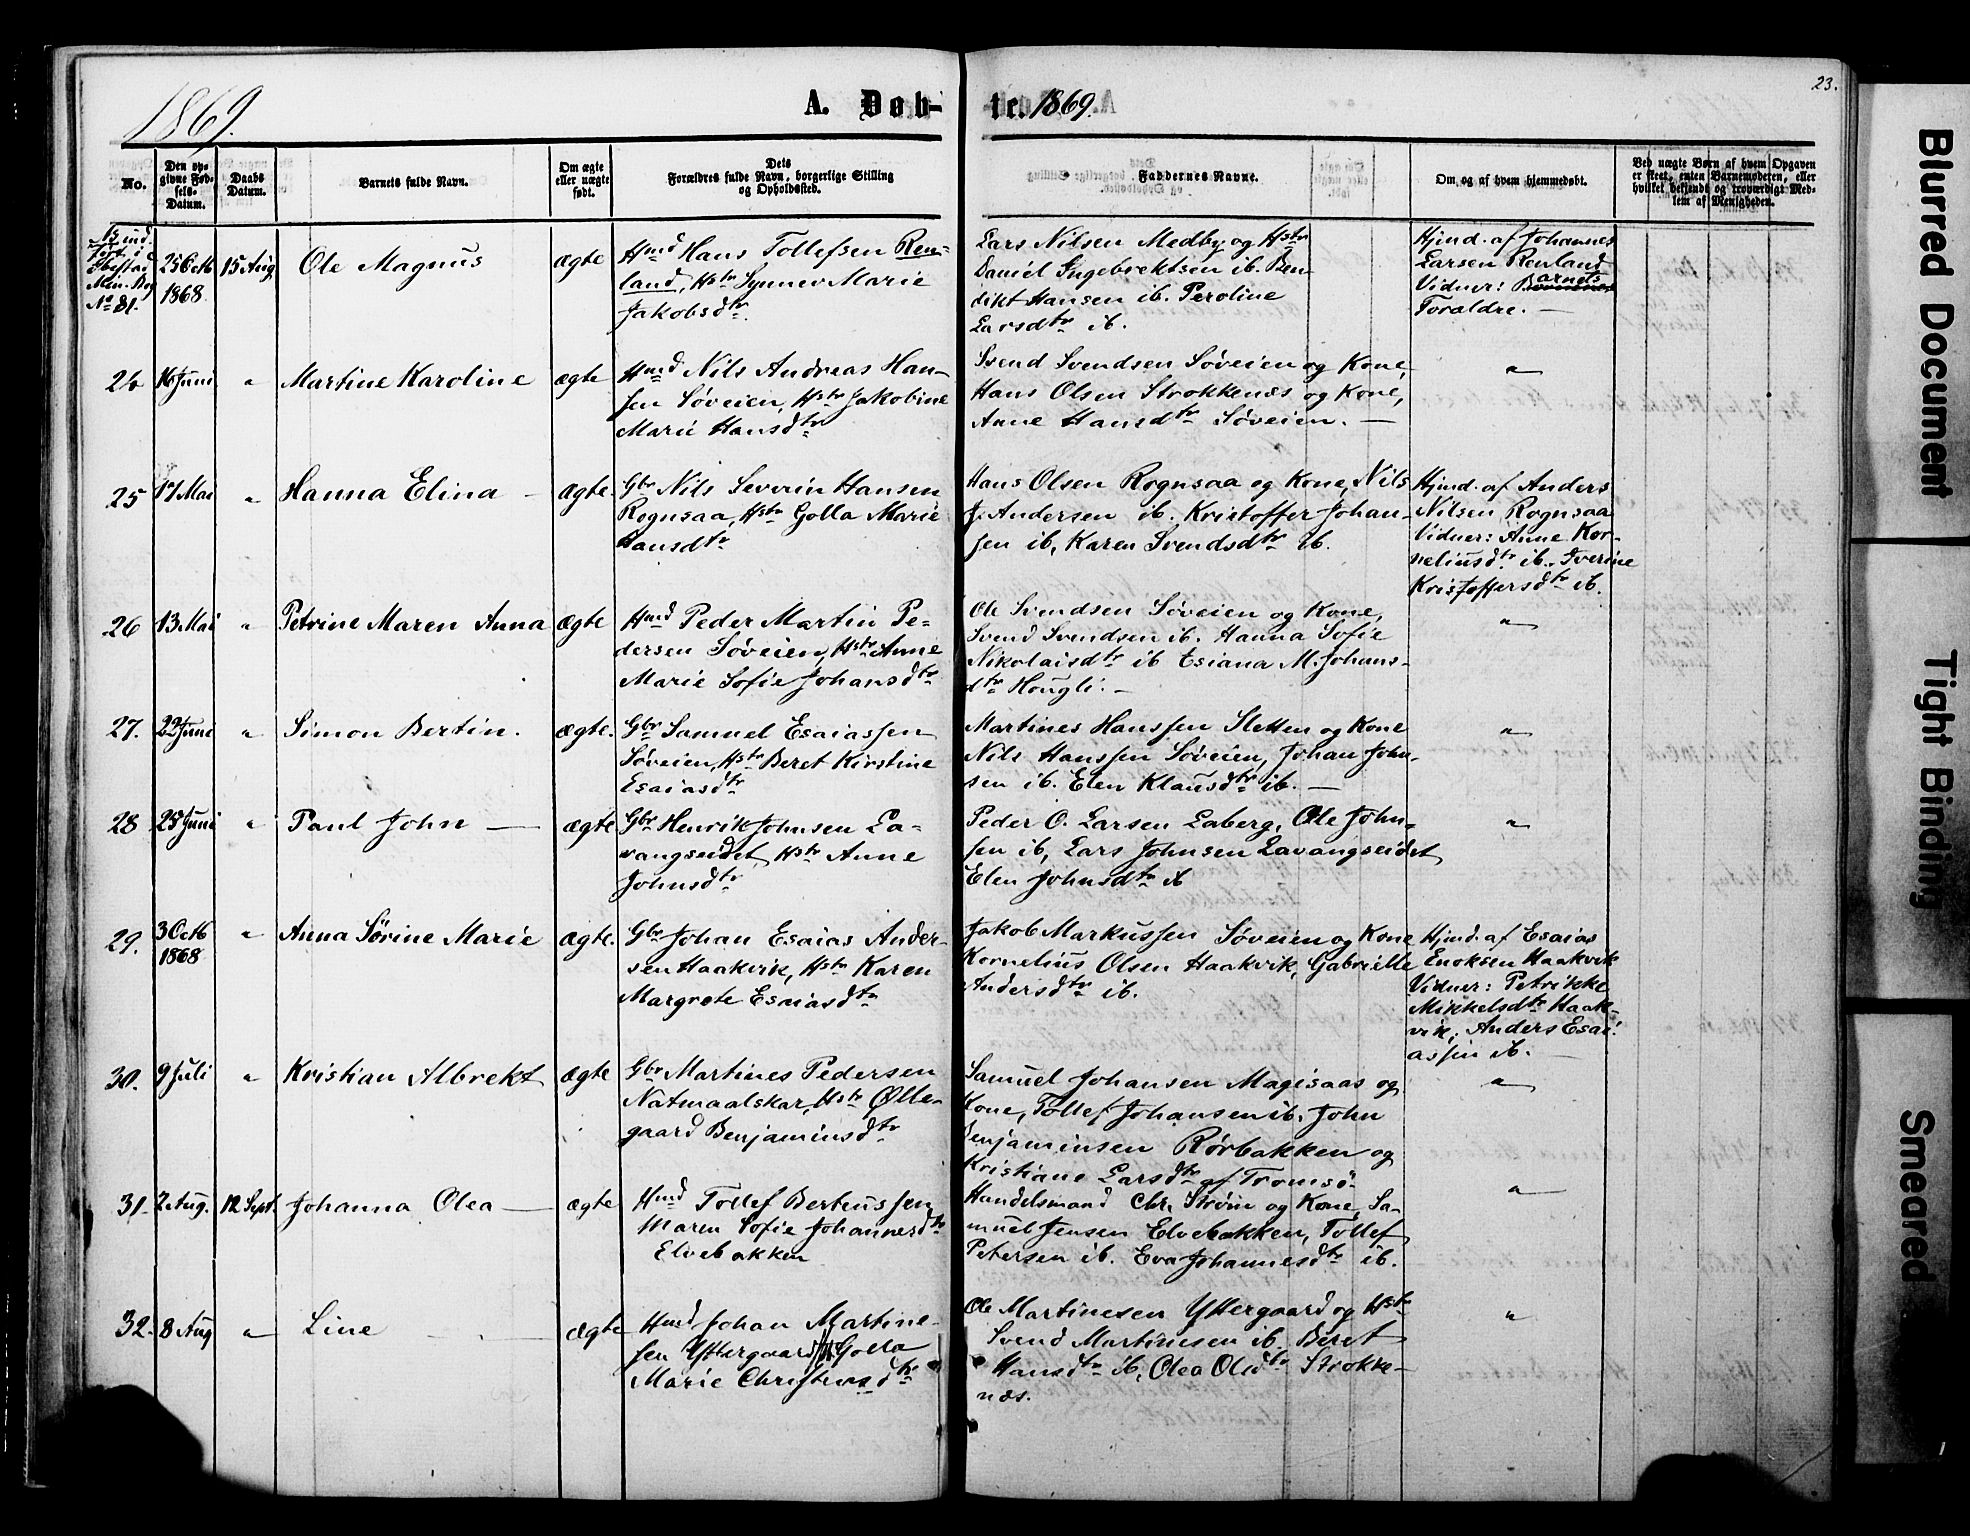 1869.
A. Døb-
te. 1869.
23.
No.
Den op-
givne Fød-
sels-
Datum.
Daabs
Datum.
Barnets fulde Navn.
Om ægte
eller uægte
født.
Dets
Forældres fulde Navn, borgerlige Stilling
og Opholdssted.
Faddernes Navne.
Om og af hvem hjemmedøbt.
Ved uægte Børn af hvem Opgaven
er skeet, enten Barnemoderen, eller
hvilket bekjendt og troværdigt Med-
lem af Menigheden.
Ibestad
Min. Bog
No 81.
25 Octb
1868
15 Aug
Ole Magnus
ægte
Hmd Hans Tollefsen Ren-
land, Hstr Synnev Marie
Jakobsdtr.
Lars Nilsen Medby og Hstr
Daniel Ingebrektsen ib. Ben
dikt Hansen ib. Peroline
Larsdtr ib.
Hjmd. af Johannes
Larsen Renland
Vidner: Barnets
Foræeldre. —
26
16 Juni
"
Martine Karoline
ægte
Hmd Nils Andreas Han-
sen Søveien, Hstr Jakobine
Marie Hansdtr
Svend Svendsen Søveien og Kone,
Hans Olsen Strokkenes og Kone,
Anne Hansdtr Søveien. —
"
25
17 Mai
"
Hanna Elina —
ægte.
Gbr Nils Severin Hansen
Rognsaa, Hstr Golla Marie
Hansdtr
Hans Olsen Rognsaa og Kone, Nils
J. Andersen ib. Kristoffer Johan-
sen ib, Karen Svendsdtr ib.
Hjmd. af Anders
Nilsen Rognsaa
Vidner: Anne Kor-
neliusdtr ib. Iverine
Kristoffersdtr ib.
26
13 Mai
"
Petrine Maren Anna
ægte
Hmd Peder Martin Pe-
dersen Søveien, Hstr Anne
Marie Sofie Johansdtr
Ole Svendsen Søveien og Kone,
Svend Svendsen ib. Hanna Sofie
Nikolaisdtr ib Esiana M. Johans-
dtr Hougli. —
"
27.
22 Juni
"
Simon Bertin.
ægte.
Gbr Samuel Esaiassen
Søveien, Hstr Beret Kirstine
Esaiasdtr
Martines Hanssen Sletten og Kone
Nils Hanssen Søveien, Johan John-
sen ib. Elen Klausdtr ib. —
"
28
25 Juni
"
Paul John —
ægte
Gbr Henrik Johnsen La-
vangseidet, Hstr Anne
Johnsdtr
Peder O. Larsen Laberg, Ole John-
sen ib, Lars Johnsen Lavangseidet
Elen Johnsdtr ib
"
29.
3 Octb
1868
"
Anna Sørine Marie
ægte.
Gbr Johan Esaias Ander-
sen Haakvik, Hstr Karen
Margrete Esaiasdtr
Jakob Markussen Søveien og Kone
Kornelius Olsen Haakvik, Gabrielle
Andersdtr ib.
Hjmd. af Esaias
Enoksen Haakvik
Vidner: Petrikke
Mikkelsdtr Haak-
vik, Anders Esai-
assen ib. —
30.
9 Juli
"
Kristian Albrekt
ægte
Gbr Martines Pedersen
Natmaalskar, Hstr Olle-
gaard Benjaminsdtr
Samuel Johansen Magisaas og
Kone, Tollef Johansen ib. John
Benjaminsen Rørbakken og
Kristiane Larsdtr af Tromsø
"
31.
2 Aug.
12 Sept.
Johanna Olea —
ægte
Hmd Tollef Berteussen
Maren Sofie Johannesdtr
Elvebakken
Handelsmand Chr. Strøm og Kone, Sa-
muel Jensen Elvebakken, Tollef
Petersen ib. Eva Johannesdtr ib.
"
32.
8 Aug
"
Line
ægte
Hmd Johan Martine-
sen Yttergaard Golla
Marie Christensdtr
Ole Martinesen Yttergaard og Hstr
Svend Martinesen ib, Beret
Hansdtr ib, Olea Olsdtr Strokke-
nes.
"
Blurred Document
Tight Binding
Smeared